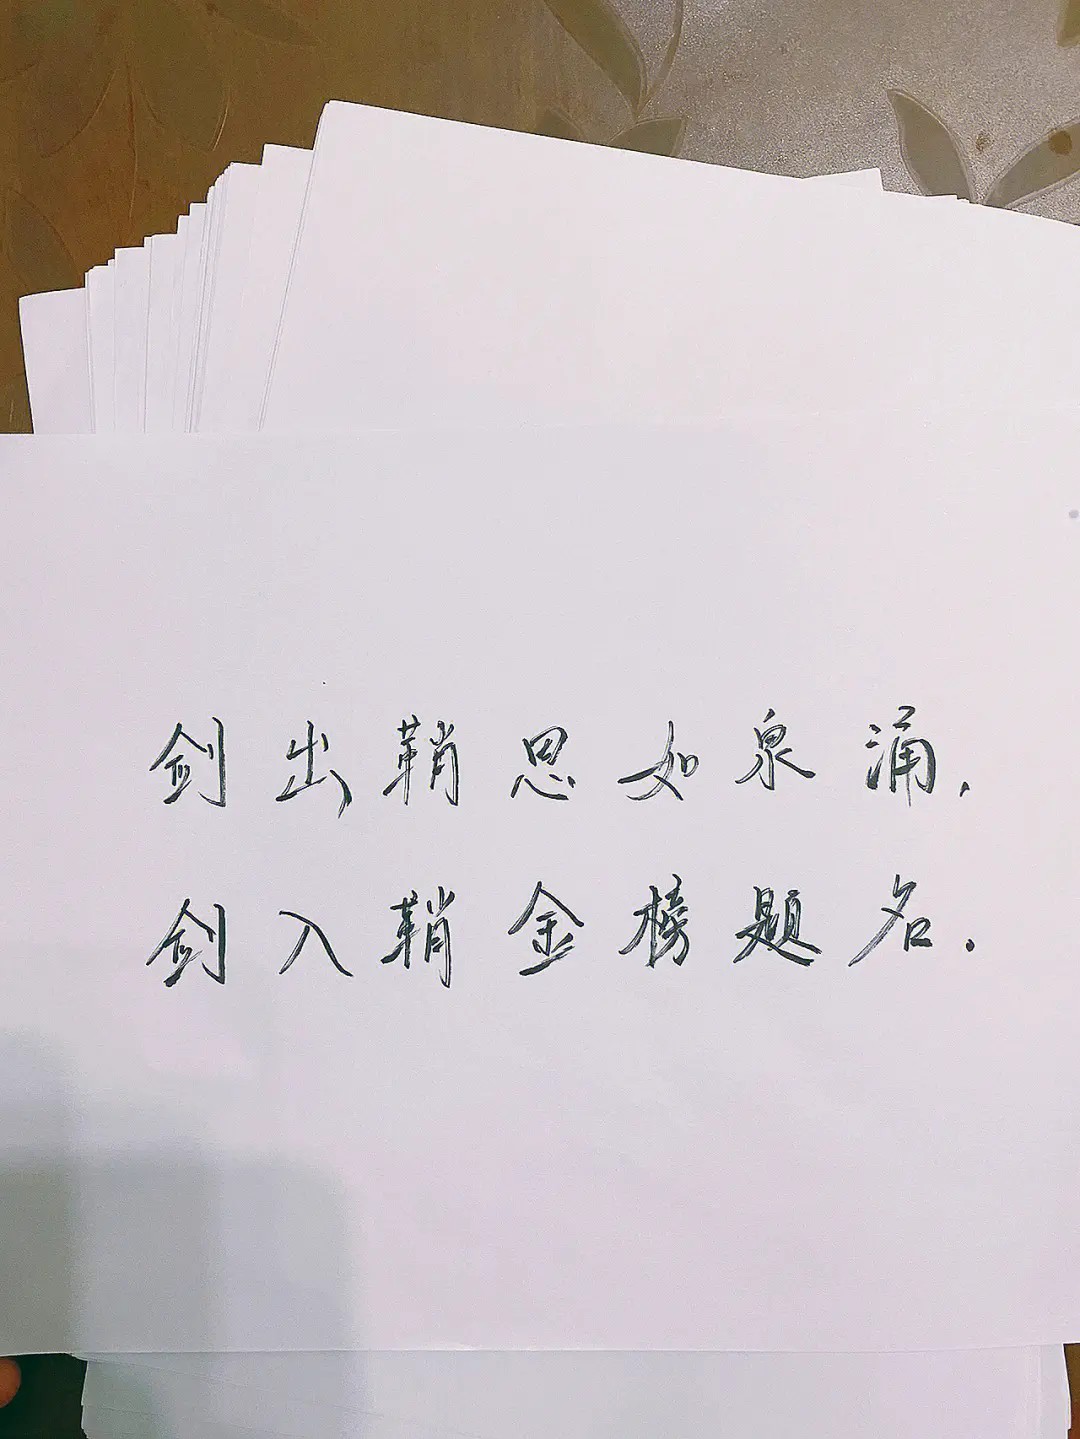 剑出鞘思如泉涌,
剑入鞘金榜题名.